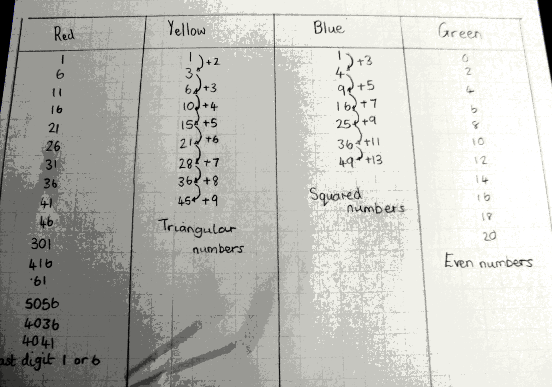 Red Yellow Blue Green
1 1 1 0
6 3 +2 4 +3 2
11 6 +3 9 +5 4
16 10 +4 16 +7 6
21 15 +5 25 +9 8
26 21 +6 36 +11 10
31 28 +7 49 +13 12
36 36 +8 14
41 45 +9 16
46 18
301 20
416
61
5056
4036
4041
last digit 1 or 6
Triangular
numbers
Squared
numbers
Even numbers